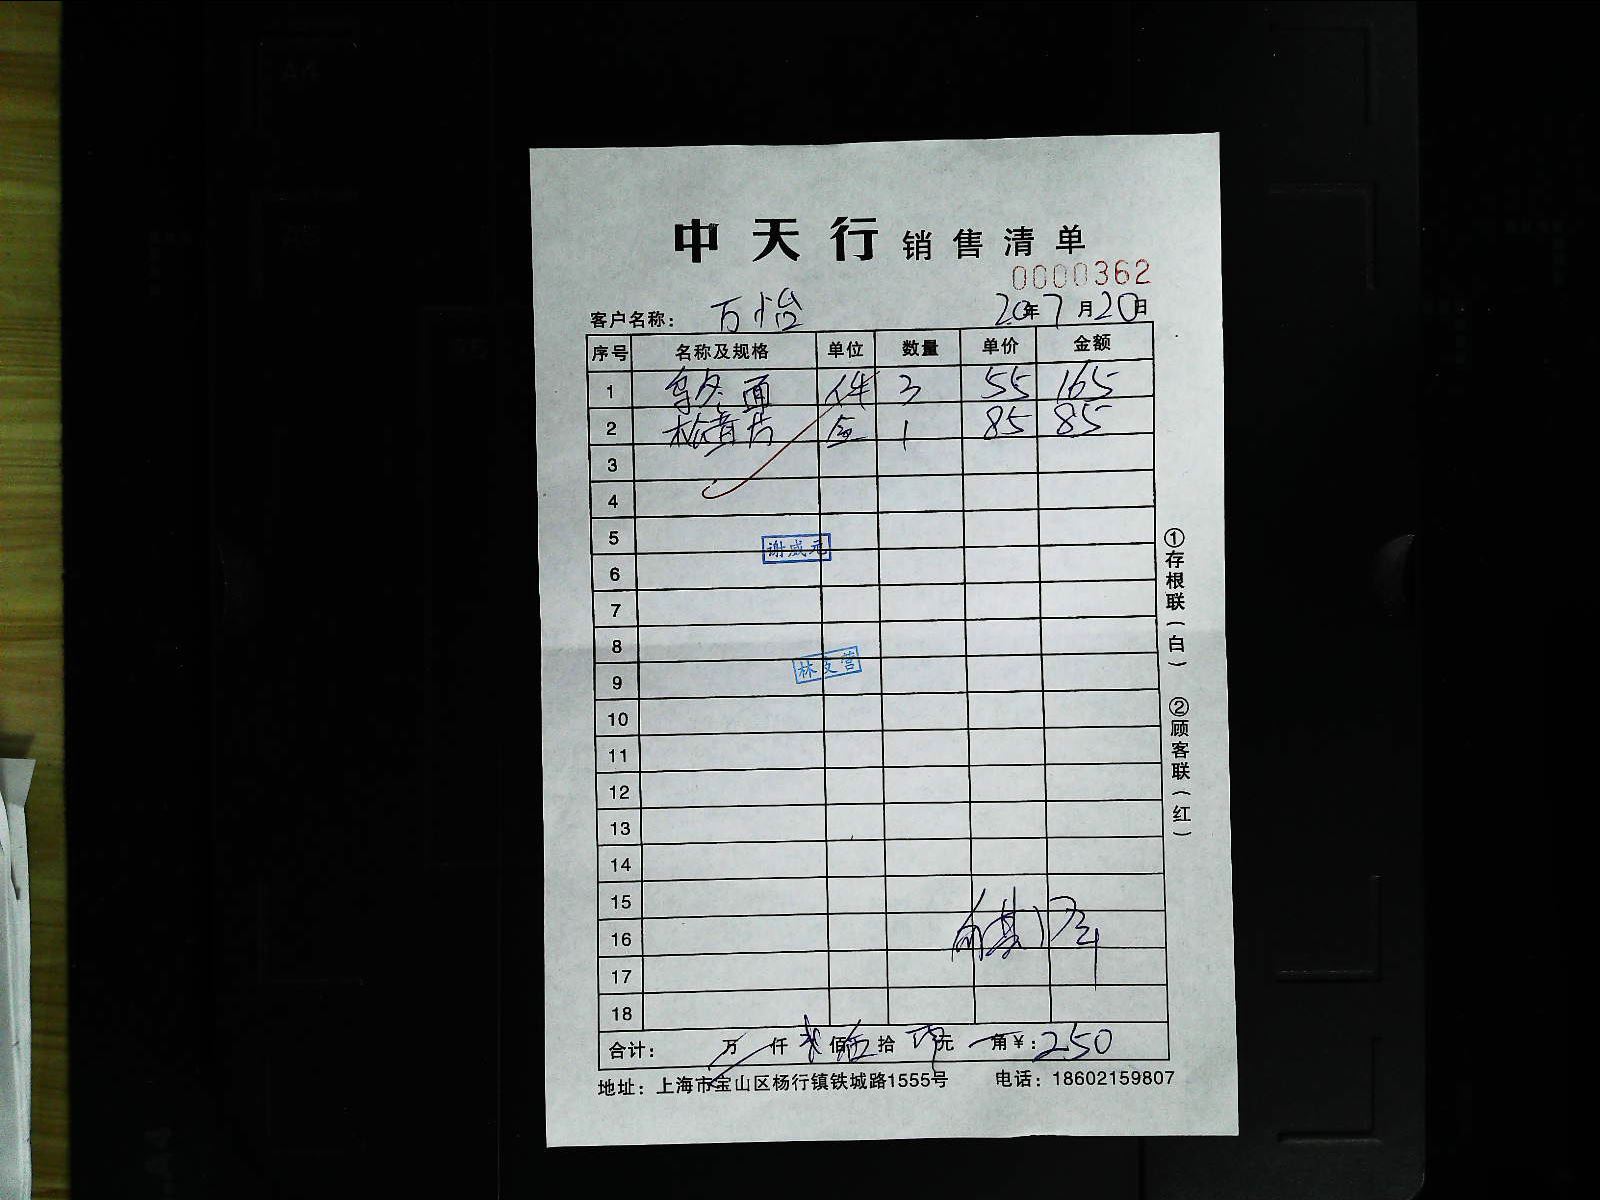 中天行 销售清单
0000362
客户名称: 万怡 2020年7月20日
序号 名称及规格 单位 数量 单价 金额
1 乌冬面 件 3 55 165
2 盒 1 85 85
3
4
5
谢威元
6
7
8
林支营
9
10
11
12
13
14
15
16
17
18
合计: 万 仟 贰佰伍拾 元 角¥:250
地址: 上海市宝山区杨行镇铁城路1555号 电话: 18602159807
①存根联(白) ②顾客联(红)